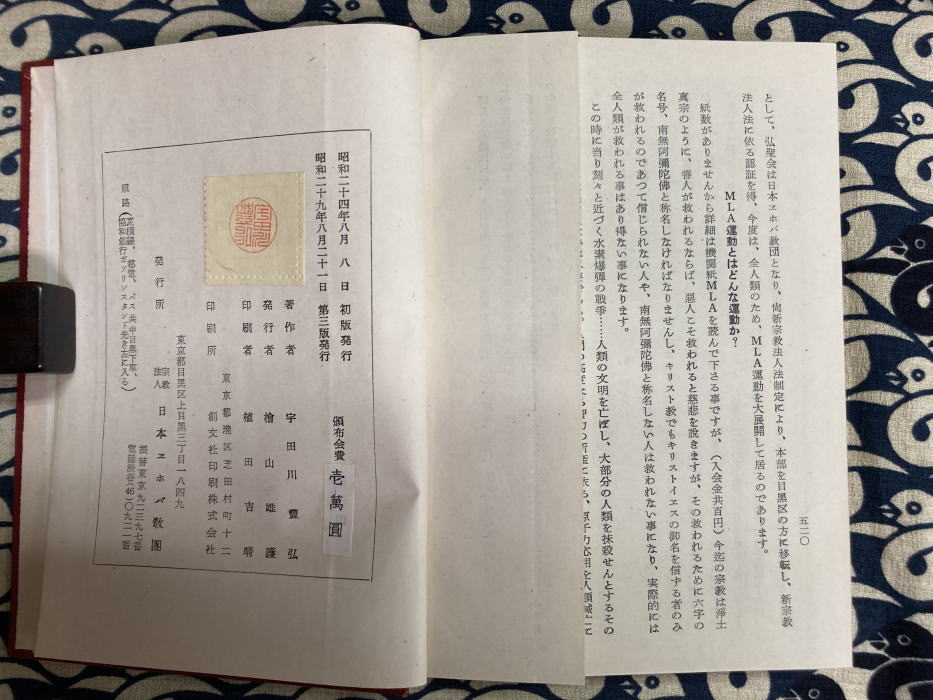 五二〇
として、弘聖会は日本ヱホバ教団となり、尚新宗教法人法制定により、本部を目黒区の方に移転し、新宗教
法人法に依る認証を得、今度は、全人類のため、MLA運動を大展開して居るのであります。
MLA運動とはどんな運動か?
紙数がありませんから詳細は機関紙MLAを読んで下さる事ですが、(入会金共百円)今迄の宗教は浄土
真宗のように、善人が救われるならば、惡人こそ救われると慈悲を說きますが、その救われるために六字の
名号、南無阿彌陀佛と称名しなければなりませんし、キリスト教でもキリストイエスの御名を信ずる者のみ
が救われるのであつて信じられない人や、南無阿彌陀佛と称名しない人は救われない事になり、実際的には
全人類が救われる事はあり得ない事になります。
この時に当り刻々と近づく水素爆弾の戦爭……人類の文明を亡ぼし、大部分の人類を抹殺せんとするその
昭和二十四年八月八日 初版発行
昭和二十九年八月二十一日 第三版発行
頒布会費 壱萬圓
著作者 宇田川豊弘
発行者 檜山雄護
印刷者 植田吉晴
東京都港区芝田村町十二
印刷所 創文社印刷株式会社
東京都目黒区上目黒三丁目一八四九
発行所 宗教法人 日本ヱホバ教團
振替東京九二三九七番
電話渋谷(46)〇九二一番
順路(東横線、都電、バス共中目黒下車、
協和銀行ガソリンスタンド先き左に入る)